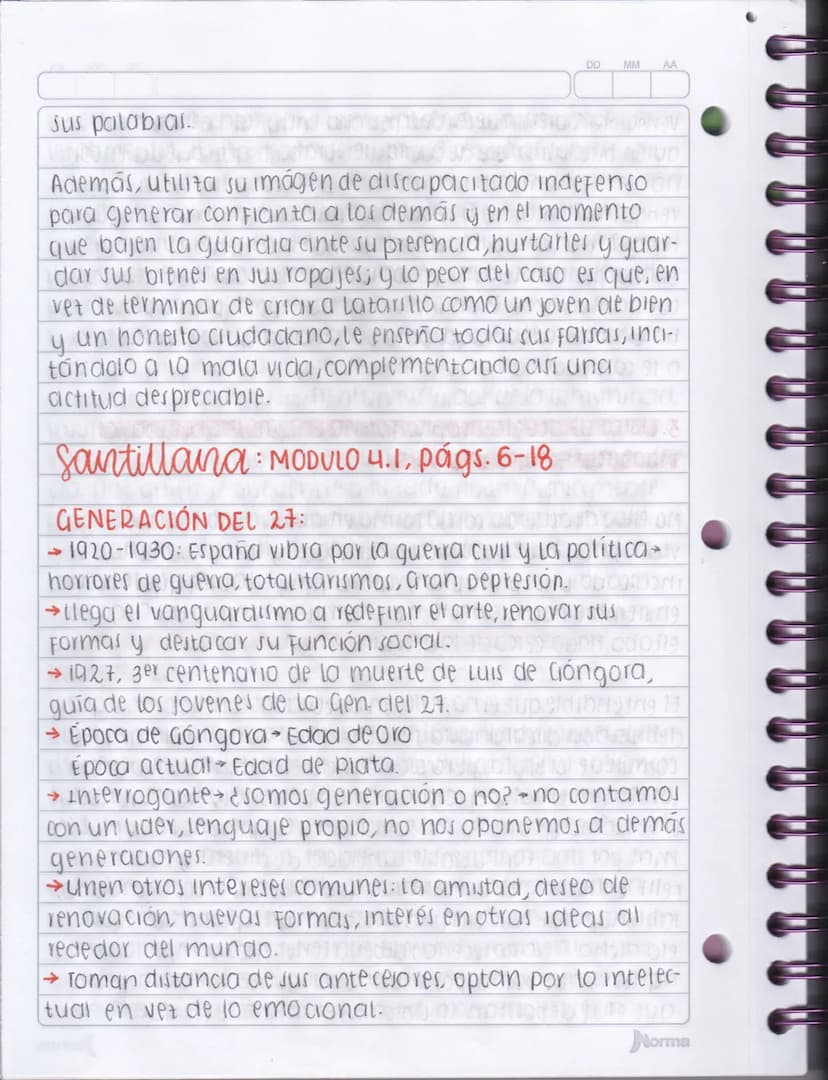 DD MM AA
sus palabras.
Además, utiliza su imágen de discapacitado indefenso
para generar confianza a los demás y en el momento
que bajen la guardia ante su presencia, hurtarles y guar-
dar sus bienes en sus ropajes, y lo peor del caso es que, en
vez de terminar de criar a Lazarillo como un joven de bien
y un honesto ciudadano, le enseña todas sus farsas, inci-
tándolo a la mala vida, complementando así una
actitud despreciable.
Santillana: MODULO 4.1, págs. 6-18
GENERACIÓN DEL 27:
→ 1920-1930: España vibra por la guerra civil y la política→
horrores de guerra, totalitarismos, Gran Depresión.
→ Llega el vanguardismo a redefinir el arte, renovar sus
formas y destacar su función social.
→ 1927, 3er centenario de la muerte de Luis de Góngora,
guía de los jovenes de la Gen. del 27.
→ Época de Góngora → Edad de Oro
Época actual → Edad de plata.
→ Interrogante → ¿somos generación o no? → no contamos
con un lider, lenguaje propio, no nos oponemos a demás
generaciones.
→ Unen otros intereses comunes: la amistad, deseo de
renovación, nuevas formas, interés en otras ideas al
rededor del mundo.
→ Toman distancia de sus antecesores, optan por lo intelec-
tual en vez de lo emocional.
Norma